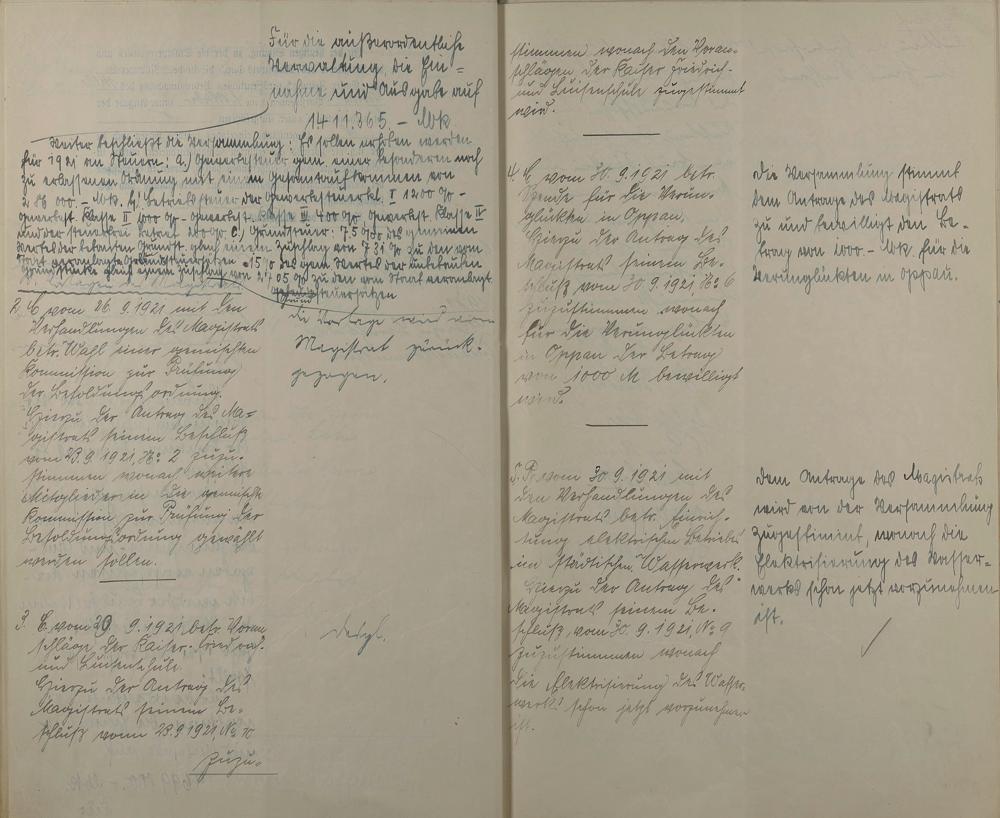 Für die außerordentliche
Verwaltung die Ein=
nahme und Ausgabe auf
1411.365.- Mk
Weiter beschließt die Versammlung: Es sollen erhoben werden
für 1921 an Steuern: a.) Gewerbesteuer gem. einer besonderen noch
zu erlassenen Ordnung mit einem Gesamtaufkommen von
288 000.- Mk. b) Betriebssteuer der Gewerbesteuerkl. I 1200 % -
Gewerbest. Klasse II 1000 % - Gewerbest. Klasse III 400 %, Gewerbest. Klasse IV
und der steuerfrei Betrieb 200 % c.) Grundsteuer: 7 5 0/00 des gemeinen
Wertes der bebauten Grundst. gleich einem Zuschlag von 731 % zu den vom
Staat veranlagten Grundsteuersätzen 15 % des gem. Wertes der unbebauten
Grundstücke gleich einem Zuschlag von 2405 % zu den vom Staat veranlagt.
Grundsteuersätzen
2. C. vom 26. 9. 1921 mit den
Verhandlungen des Magistrats
betr. Wahl einer gemischten
Kommission zur Prüfung
der Besoldungsordnung.
Hierzu der Antrag des Ma=
gistrats seinem Beschluß
vom 23.9.1921, No 2 zuzu-
stimmen wonach weitere
Mitglieder in die gemischte
Kommission zur Prüfung der
Besoldungsordnung gewählt
werden sollen.
die Vorlage wird vom
Magistrat zurück-
gezogen.
3. C. vom 29. 9. 1921 betr. Voran
schläge der Kaiser-Friedrich
und Luisenschule.
Hierzu der Antrag des
Magistrats seinem Be-
schluß vom 28.9.1921, No 10
zuzu-
desgl.
stimmen wonach den Voran-
schlägen der Kaiser Friedrich-
und Luisenschule zugestimmt
wird.
4. C. vom 30. 9. 1921 betr.
Spende für die Verun-
glückten in Oppau.
Hierzu der Antrag des
Magistrats seinem Be-
schluß vom 30. 9. 1921, No 6
zuzustimmen wonach
für die Verunglückten
in Oppau der Betrag
von 1000 M bewilligt
wird.
die Versammlung stimmt
dem Antrage des Magistrats
zu und bewilligt den Be-
trag von 1000.- Mk. für die
Verunglückten in Oppau.
5. vom 30. 9. 1921 mit
den Verhandlungen des
Magistrats betr. Einrich-
tung elektrischen Betriebs
im städtischen Wasserwerk.
Hierzu der Antrag des
Magistrats seinem Be-
schluß vom 30. 9. 1921, No 9
zuzustimmen wonach
die Elektrisierung des Wasser-
werks schon jetzt vorzunehmen
ist.
dem Antrage des Magistrats
wird von der Versammlung
zugestimmt, wonach die
Elektrisierung des Wasser-
werks schon jetzt vorzunehmen
ist.